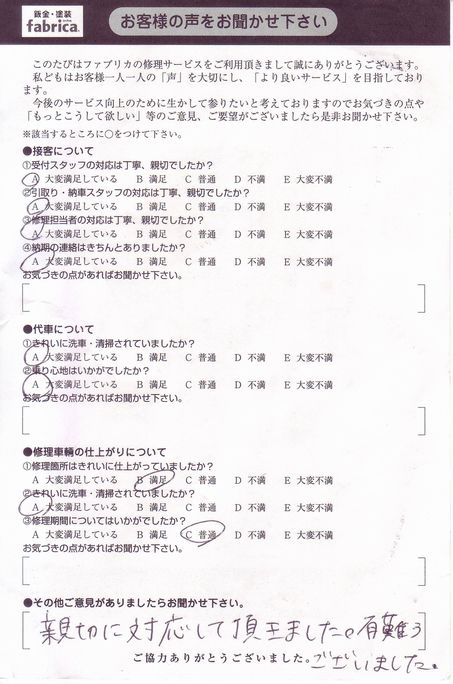 鈑金・塗装
fabrica.
お客様の声をお聞かせ下さい
このたびはファブリカの修理サービスをご利用頂きまして誠にありがとうございます。
私どもはお客様一人一人の「声」を大切にし、「より良いサービス」を目指しており
ます。
今後のサービス向上のために生かして参りたいと考えておりますのでお気づきの点や
「もっとこうして欲しい」等のご意見、ご要望がございましたら是非お聞かせ下さい。
※該当するところに○をつけて下さい。
●接客について
①受付スタッフの対応は丁寧、親切でしたか?
A 大変満足している B 満足 C 普通 D 不満 E 大変不満
②引取り・納車スタッフの対応は丁寧、親切でしたか?
A 大変満足している B 満足 C 普通 D 不満 E 大変不満
③修理担当者の対応は丁寧、親切でしたか?
A 大変満足している B 満足 C 普通 D 不満 E 大変不満
④納期の連絡はきちんとありましたか?
A 大変満足している B 満足 C 普通 D 不満 E 大変不満
お気づきの点があればお聞かせ下さい。
●代車について
①きれいに洗車・清掃されていましたか?
A 大変満足している B 満足 C 普通 D 不満 E 大変不満
②乗り心地はいかがでしたか?
A 大変満足している B 満足 C 普通 D 不満 E 大変不満
お気づきの点があればお聞かせ下さい。
●修理車輌の仕上がりについて
①修理箇所はきれいに仕上がっていましたか?
A 大変満足している B 満足 C 普通 D 不満 E 大変不満
②きれいに洗車・清掃されていましたか?
A 大変満足している B 満足 C 普通 D 不満 E 大変不満
③修理期間についてはいかがでしたか?
A 大変満足している B 満足 C 普通 D 不満 E 大変不満
お気づきの点があればお聞かせ下さい。
●その他ご意見がありましたらお聞かせ下さい。
親切に対応して頂きました。有難う
ございました。
ご協力ありがとうございました。